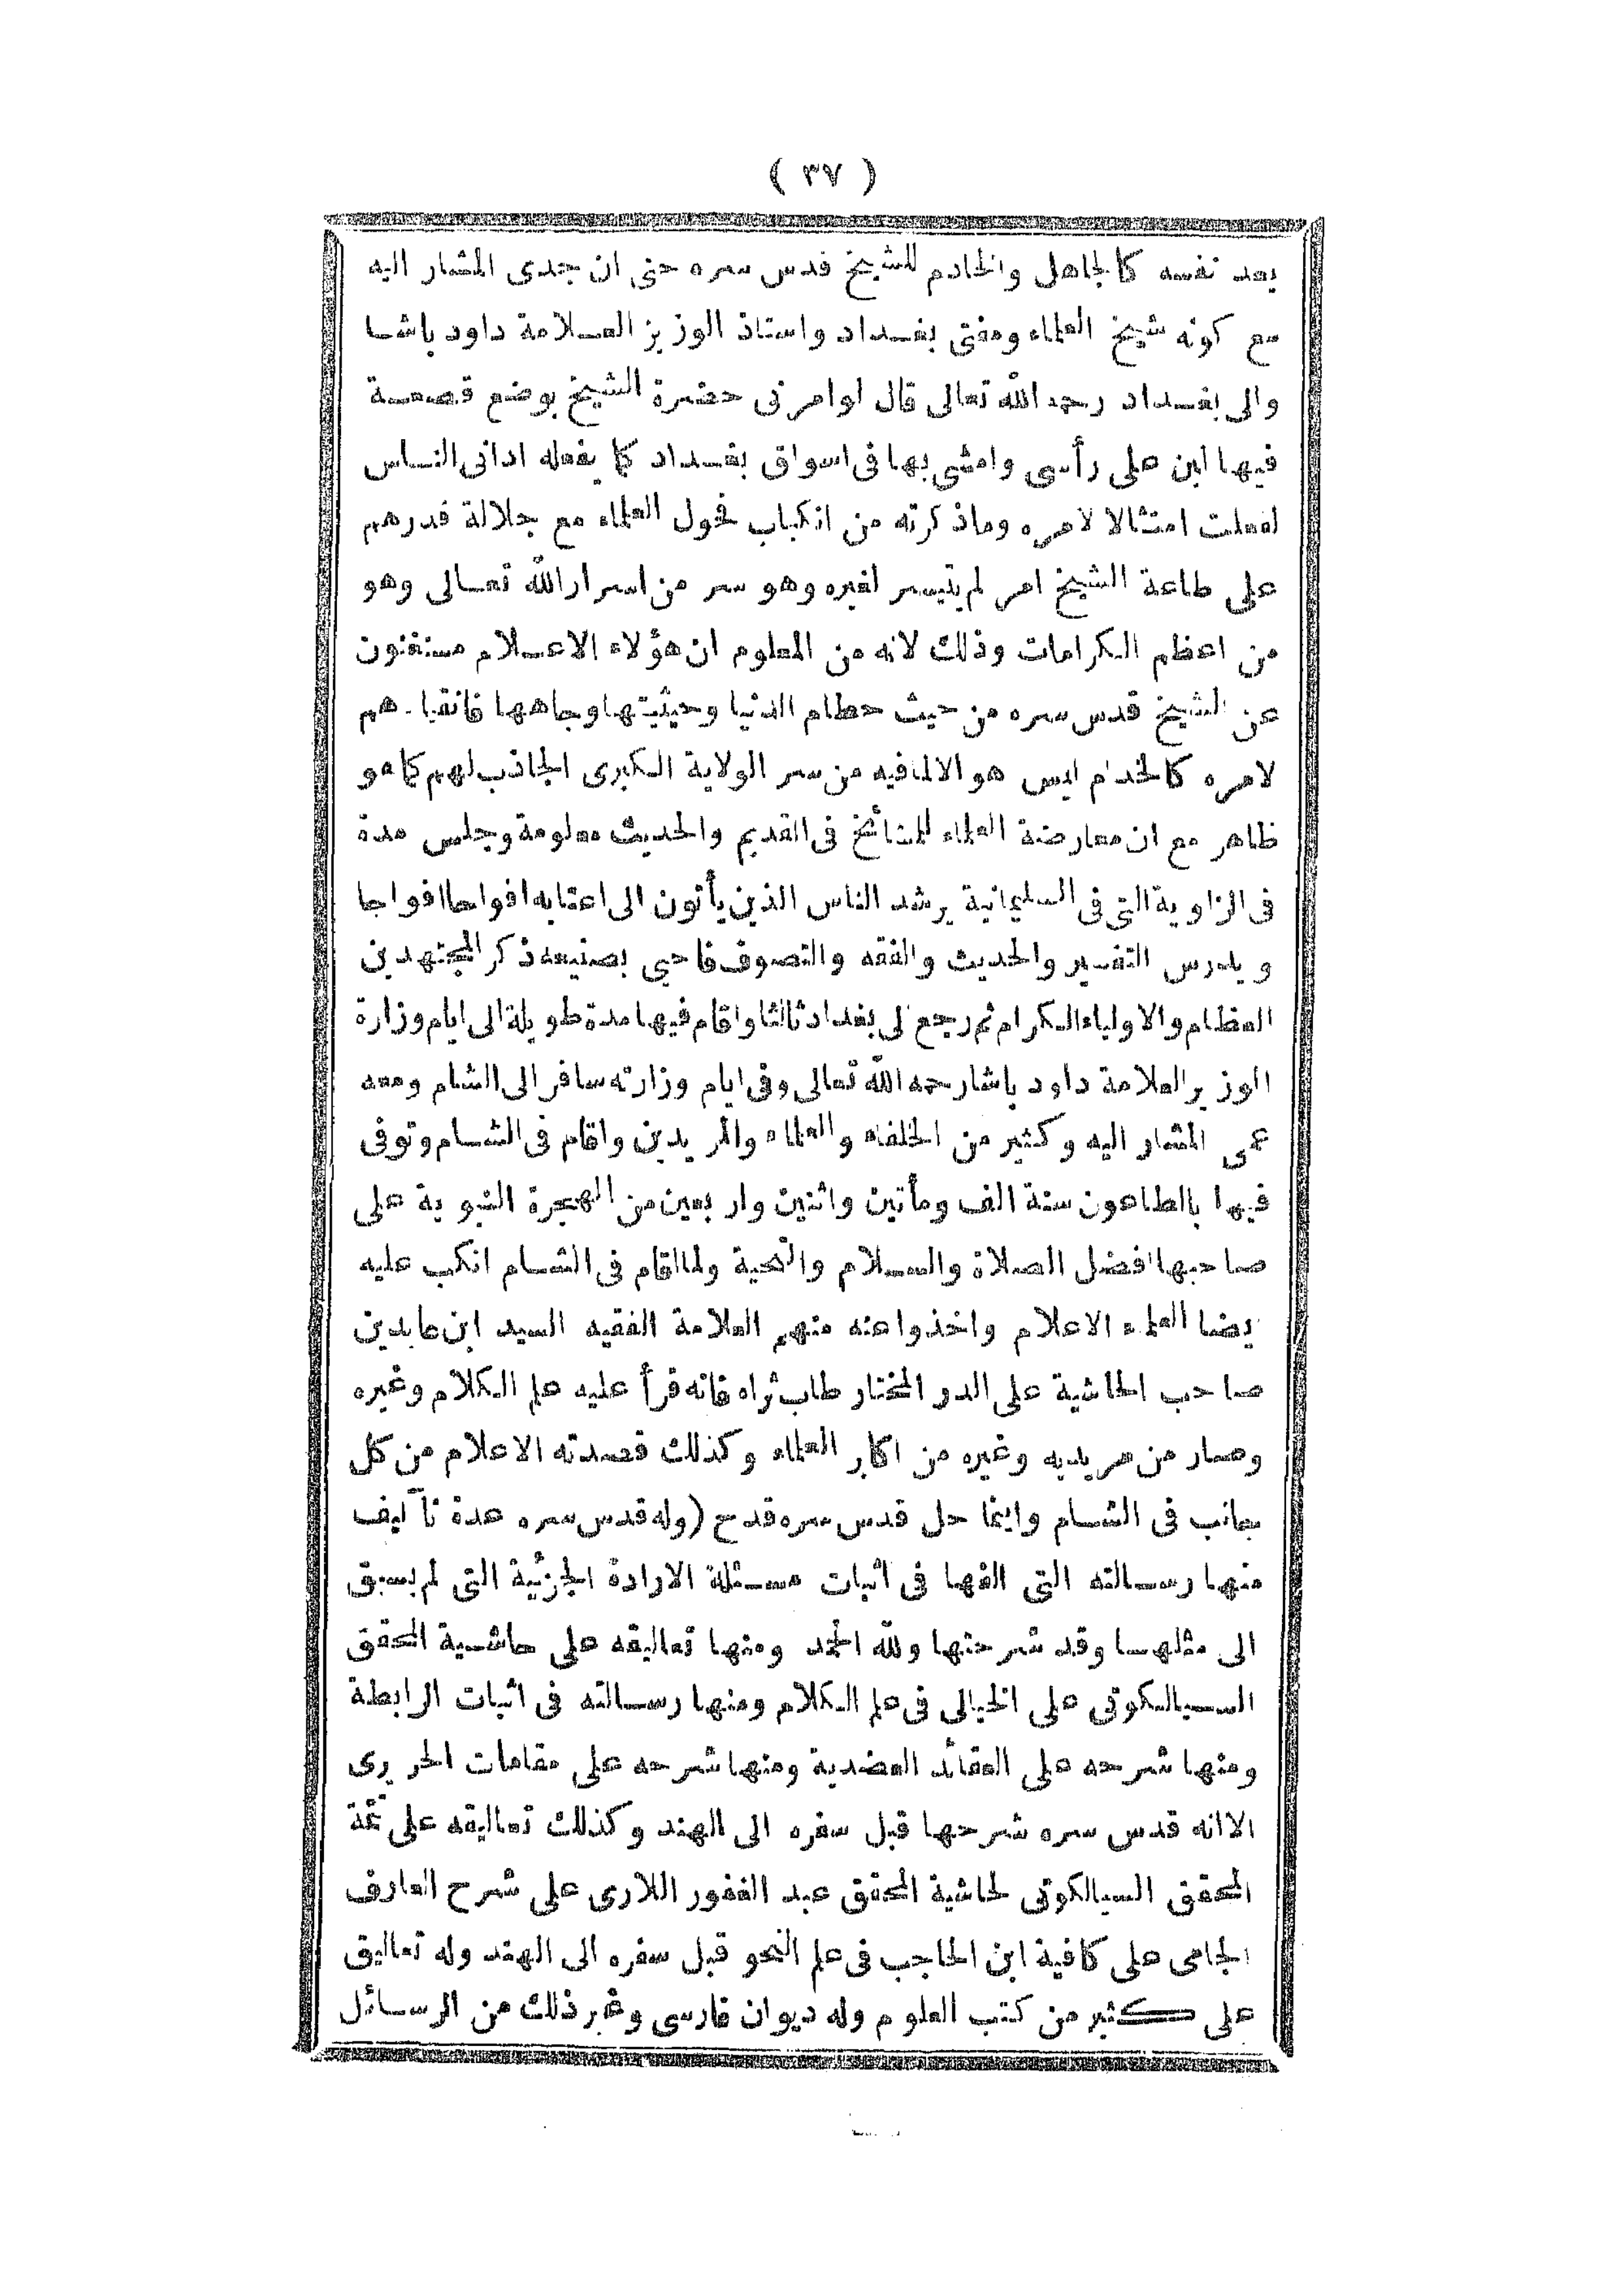 ( ٣٧ )
يعد نفسه كالجاهل والخادم للشيخ قدس سره حتى ان جدى المشار اليه
مع كونه شيخ العلماء ومفتى بغـداد واستاذ الوزير العـلامة داود باشـا
والى بغـداد رحمه الله تعالى قال لوامرنى حضرة الشيخ بوضع قصعـة
فيها لبن على رأسى وامشى بها فى اسواق بغـداد كما يفعله ادانى النـاس
لفعلت امتثالا لامره وماذكرته من انكباب فحول العلماء مع جلالة قدرهم
على طاعة الشيخ امر لم يتيسر لغيره وهو سر من اسرار الله تعـالى وهو
من اعظم الكرامات وذلك لانه من المعلوم ان هؤلاء الاعـلام مستغنون
عن الشيخ قدس سره من حيث حطام الدنيا وحيثيتها وجاهها فانقيادهم
لامره كالخدام ليس هو الا لمافيه من سر الولاية الكبرى الجاذب لهم كما هو
ظاهر مع ان معارضة العلماء للمشائخ فى القديم والحديث معلومة وجلس مدة
فى الزاوية التى فى السليمانية يرشد الناس الذين يأتون الى اعتابه افواجا افواجا
ويدرس التفسير والحديث والفقه والتصوف فاحيى بصنيعه ذكر المجتهدين
العظام والاولياء الكرام ثم رجع الى بغداد ثالثا واقام فيها مدة طويلة الى ايام وزارة
الوزير العلامة داود باشا رحمه الله تعالى وفى ايام وزارته سافر الى الشام ومعه
عمى المشار اليه وكثير من الخلفاء والعلماء والمريدين واقام فى الشـام وتوفى
فيها بالطاعون سنة الف ومأتين واثنين واربعين من الهجرة النبوية على
صاحبها افضل الصلاة والسـلام والتحية ولما اقام فى الشـام انكب عليه
يضا العلماء الاعلام واخذوا عنه منهم العلامة الفقيه السيد ابن عابدين
صاحب الحاشية على الدر المختار طاب ثراه فانه قرأ عليه علم الكلام وغيره
وصار من مريديه وغيره من اكابر العلماء وكذلك قصدته الاعلام من كل
جانب فى الشـام واينما حل قدس سره قد ح (وله قدس سره عدة تآليف
منها رسـالته التى الفها فى اثبات مسـئلة الارادة الجزئية التى لم يسبق
الى مثلهـا وقد شرحتها ولله الحمد ومنها تعاليقه على حاشـية المحقق
السـيالكوتى على الخيالى فى علم الكلام ومنها رسـالته فى اثبات الرابطة
ومنها شرحه على العقائد العضدية ومنها شرحه على مقامات الحريرى
الا انه قدس سره شرحها قبل سفره الى الهند وكذلك تعاليقه على تتمة
المحقق السيالكوتى لحاشية المحقق عبد الغفور اللارى على شرح العارف
الجامى على كافية ابن الحاجب فى علم النحو قبل سفره الى الهند وله تعاليق
على كثير من كتب العلوم وله ديوان فارسى وغير ذلك من الرسـائل